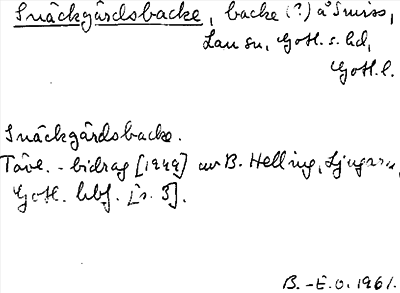 Snäckgårdsbacke, backe (?) å Smiss,
Lau sn, Gotl. s. hd,
Gotl. l.
Snäckgårdsbacke.
Tävl.-bidrag [1949] av B. Helling, Ljugarn,
Gotl. hbf. [s. 3].
B.-E.O. 1961.